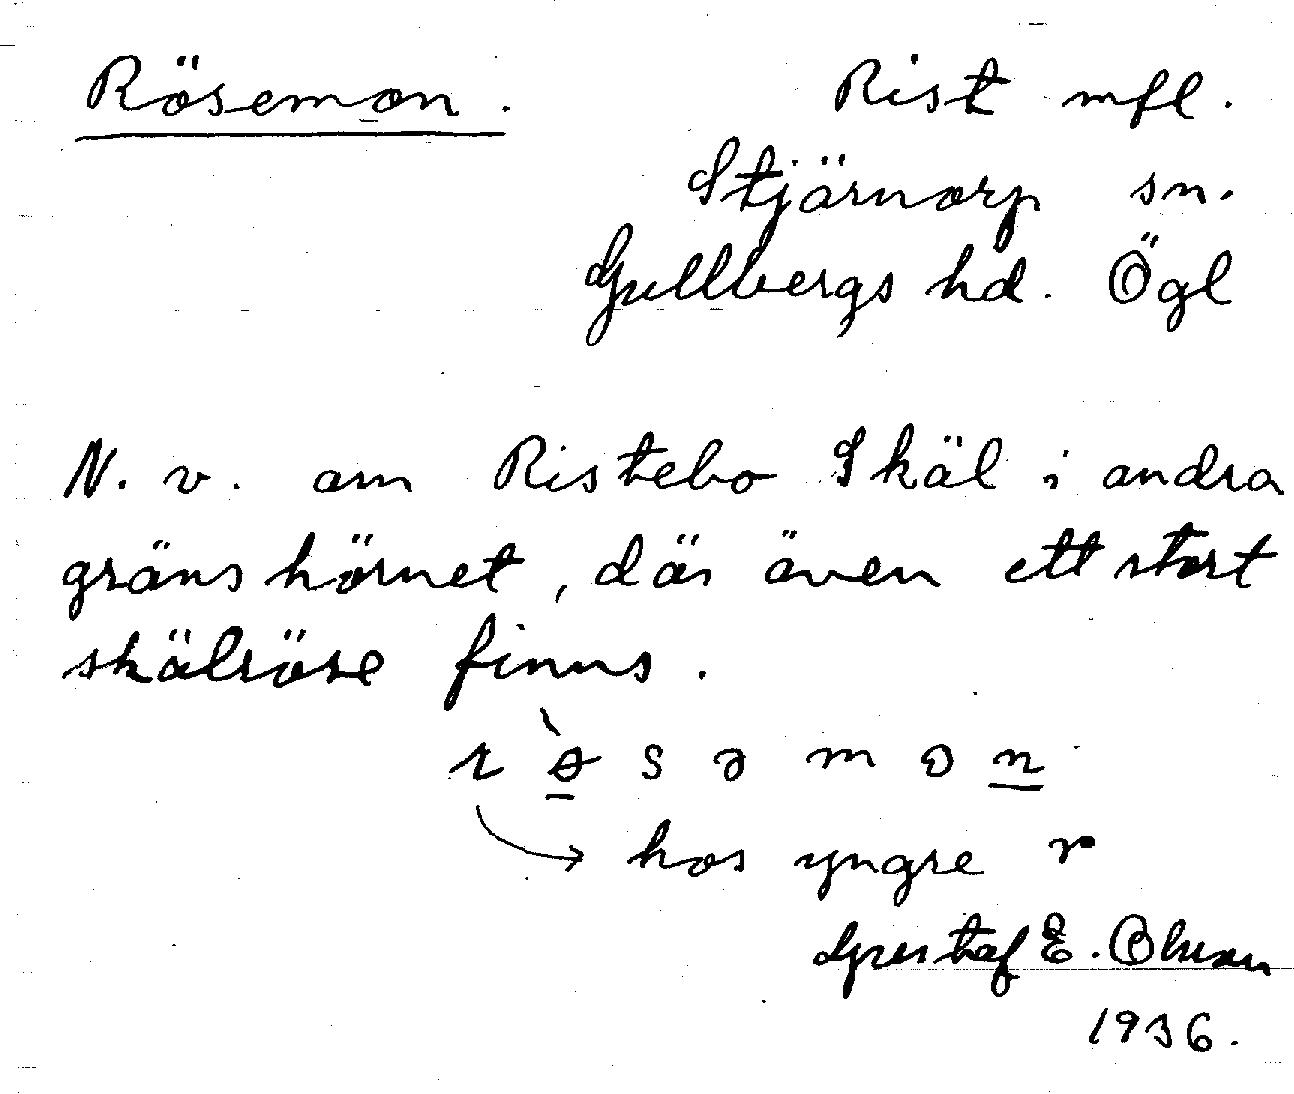 Rösemon. Rist mfl.
Stjärnorp sn.
Gullbergs hd. Ögl
N. v. om Ristebo Skäl i andra
gränshörnet, där även ett stort
skälröse finns.
hos yngre r
Gustaf E. Olsson
1936.